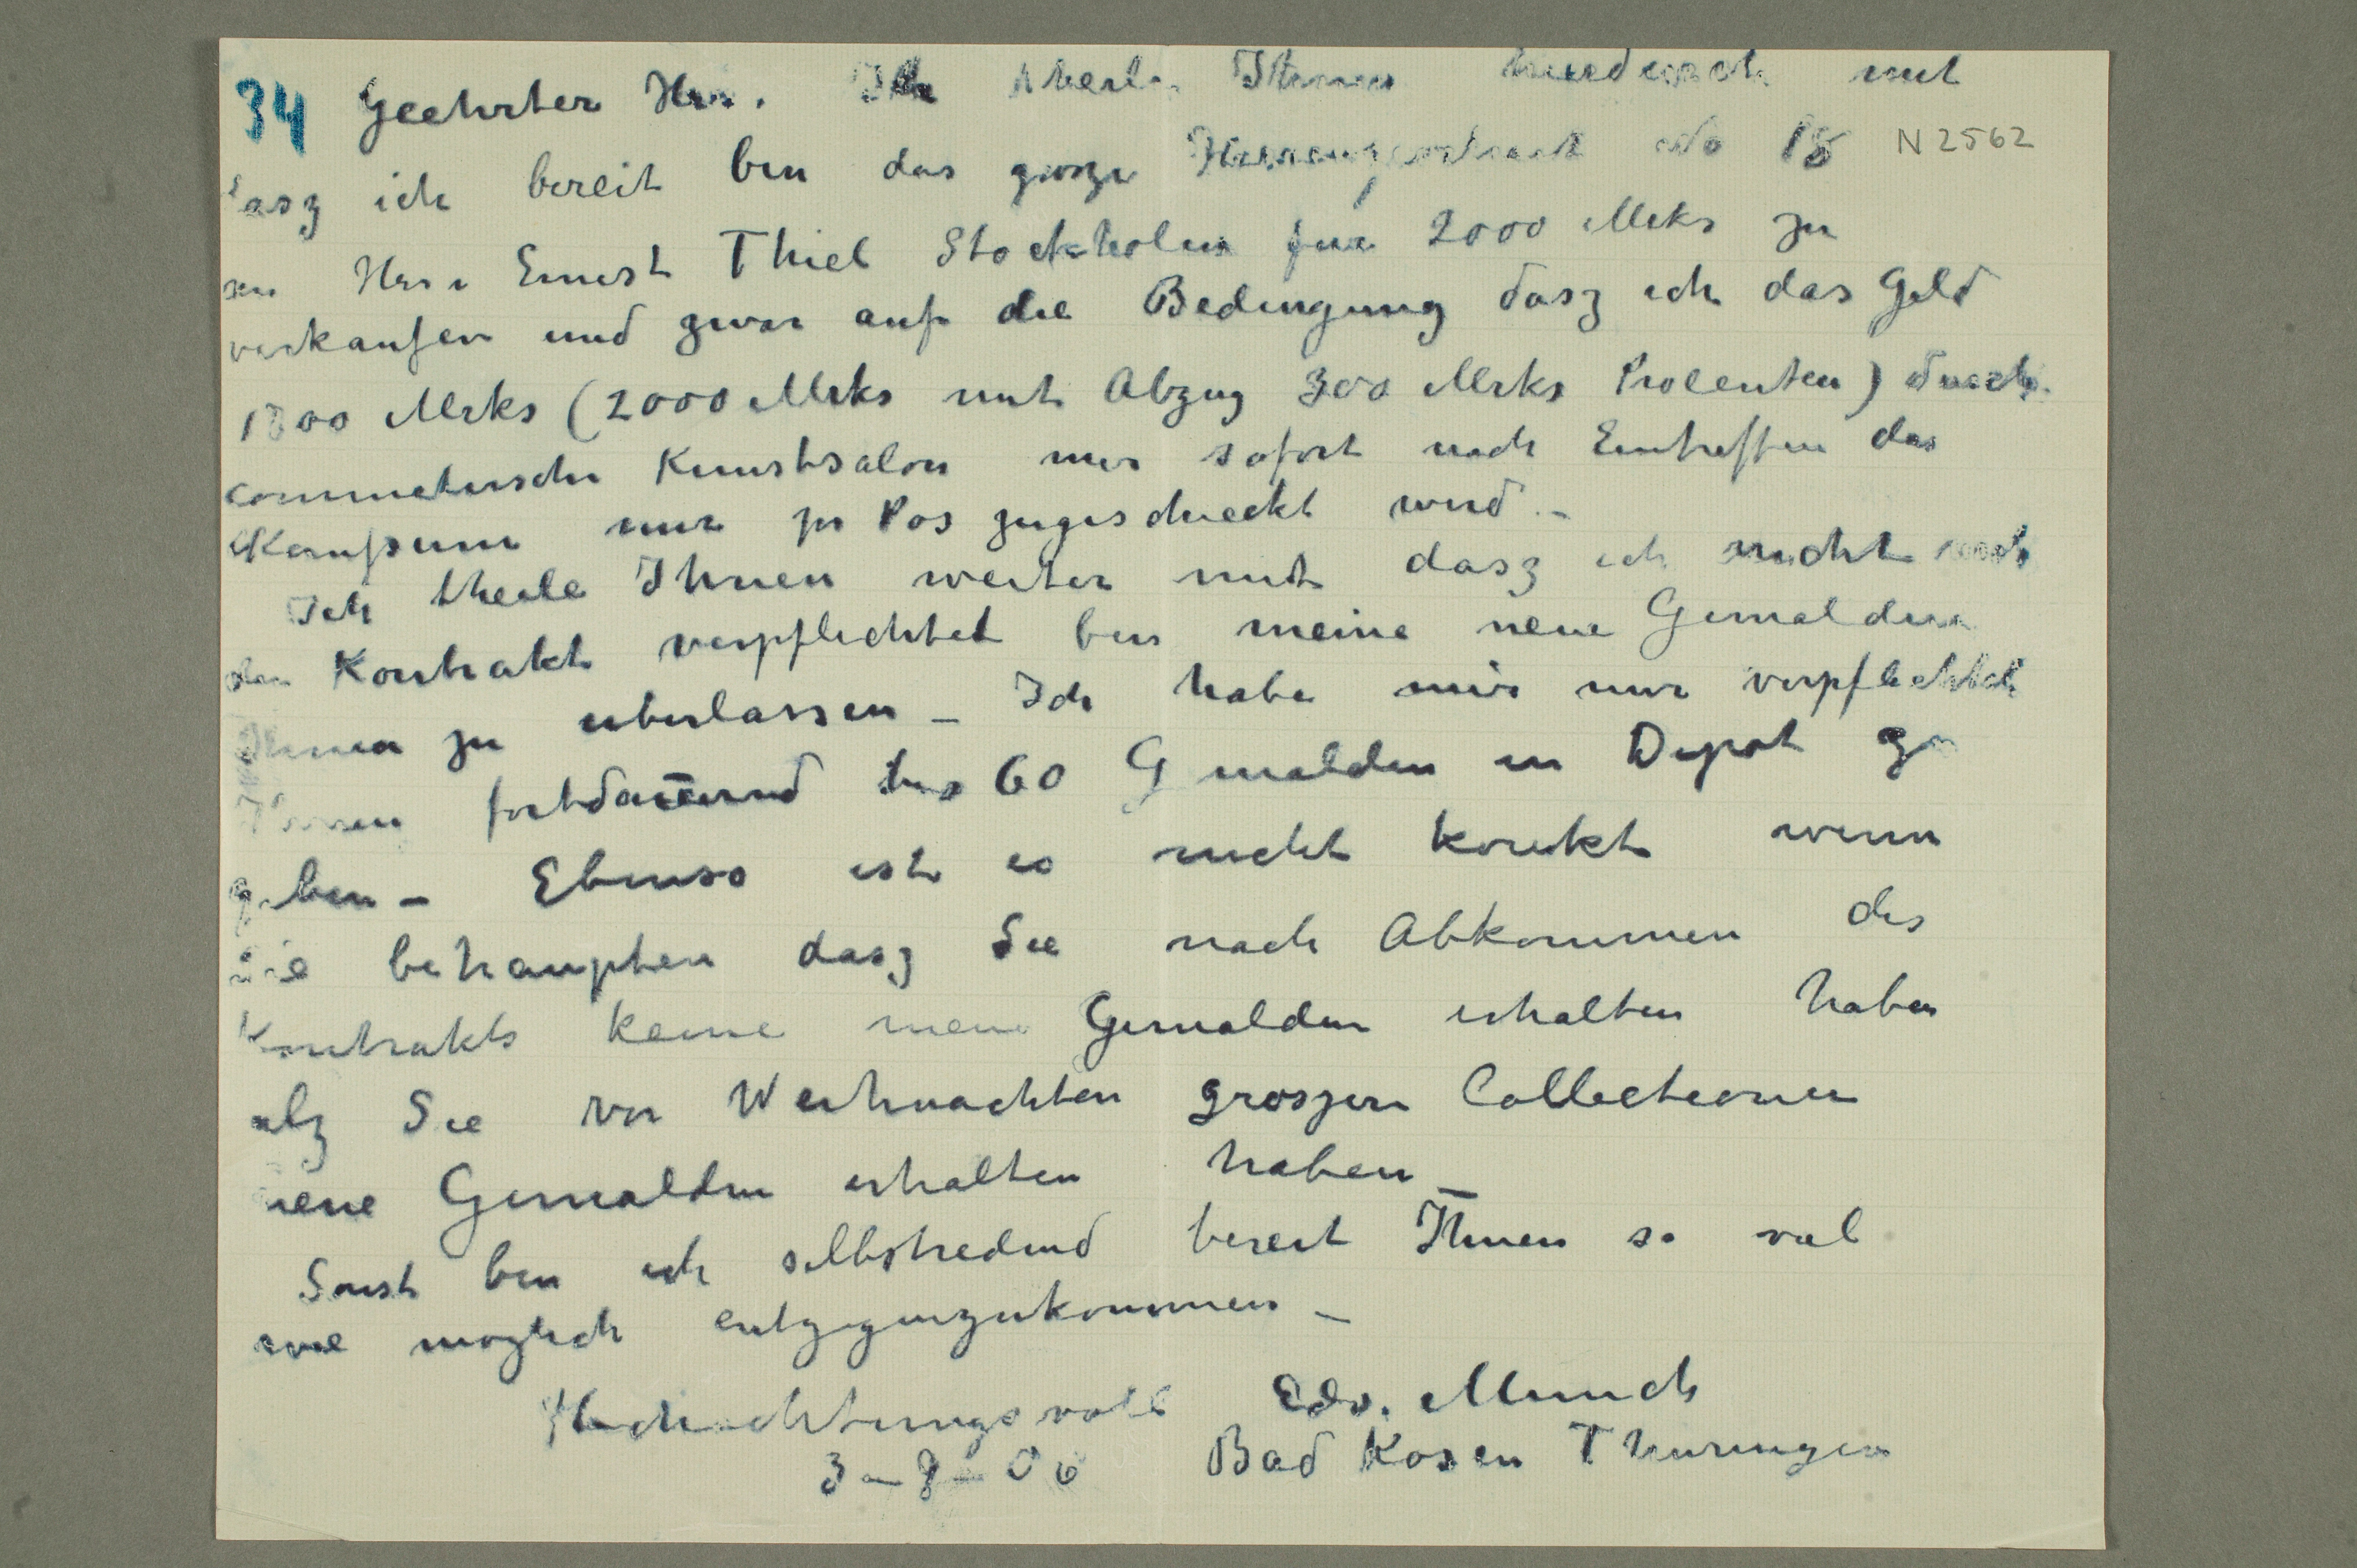 34 Geehrter Herr. Ich theile Ihnen hierdurch mit
dasz ich bereit bin das grosze Herrenportrait No 18 N 2562
an Herr Ernest Thiel Stockholm fur 2000 Mrks zu
verkaufen und zwar auf die Bedingung dasz ich das Geld
1700 Mrks (2000 Mrks mit Abzug 300 Mrks Procenten) durch
commetersche Kunstsalon mir sofort nach Eintreffen das
Kaufsum mir pr Pos zugeschieckt wird. –
Ich theile Ihnen weiter mit dasz ich nicht nach
den Kontrakt verpflichtet bin meine neue Gemalden
Ihnen zu uberlassen – Ich habe mir nur verpflichtet
Ihnen fortdauernd bis 60 Gmalden in Depot zu
geben – Ebenso ist es nicht korekt wenn
Sie behaupten dasz Sie nach Abkommen des
Kontrakts keine neue Gemalden erhalten haben
alz Sie vor Weihnachten groszere Collectionen
neue Gemalden erhalten haben –
Sonst bin ich selbstredend bereit Ihnen so viel
wie moglich entgegenzukommen –
Hochachtungsvoll Edv. Munch
3 – 8 – 06 Bad Kosen Thuringen